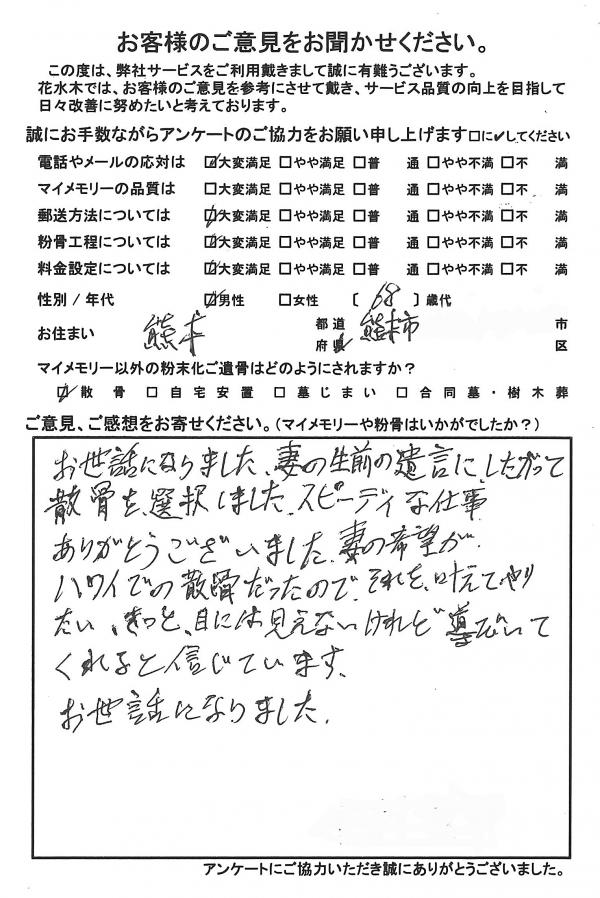 お客様のご意見をお聞かせください。
この度は、弊社サービスをご利用戴きまして誠に有難うございます。
花水木では、お客様のご意見を参考にさせて戴き、サービス品質の向上を目指して
日々改善に努めたいと考えております。
誠にお手数ながらアンケートのご協力をお願い申し上げます□に✓してください
電話やメールの応対は ☑大変満足 □やや満足 □普 通 □やや不満 □不 満
マイメモリーの品質は □大変満足 □やや満足 □普 通 □やや不満 □不 満
郵送方法については ☑大変満足 □やや満足 □普 通 □やや不満 □不 満
粉骨工程については ☑大変満足 □やや満足 □普 通 □やや不満 □不 満
料金設定については ☑大変満足 □やや満足 □普 通 □やや不満 □不 満
性別 / 年代 ☑男性 □女性 〔 68 〕歳代
お住まい 熊本 都道府県 熊本市 市区
マイメモリー以外の粉末化ご遺骨はどのようにされますか?
☑散骨 □自宅安置 □墓じまい □合同墓・樹木葬
ご意見、ご感想をお寄せください。(マイメモリーや粉骨はいかがでしたか?)
お世話になりました、妻の生前の遺言に、したがって
散骨を、選択しました、スピーディな仕事
ありがとうございました、妻の希望が、
ハワイでの散骨だったので、それを、叶えてやり
たい、きっと、目には見えないけれど導びいて
くれると信じています、
お世話になりました、
アンケートにご協力いただき誠にありがとうございました。